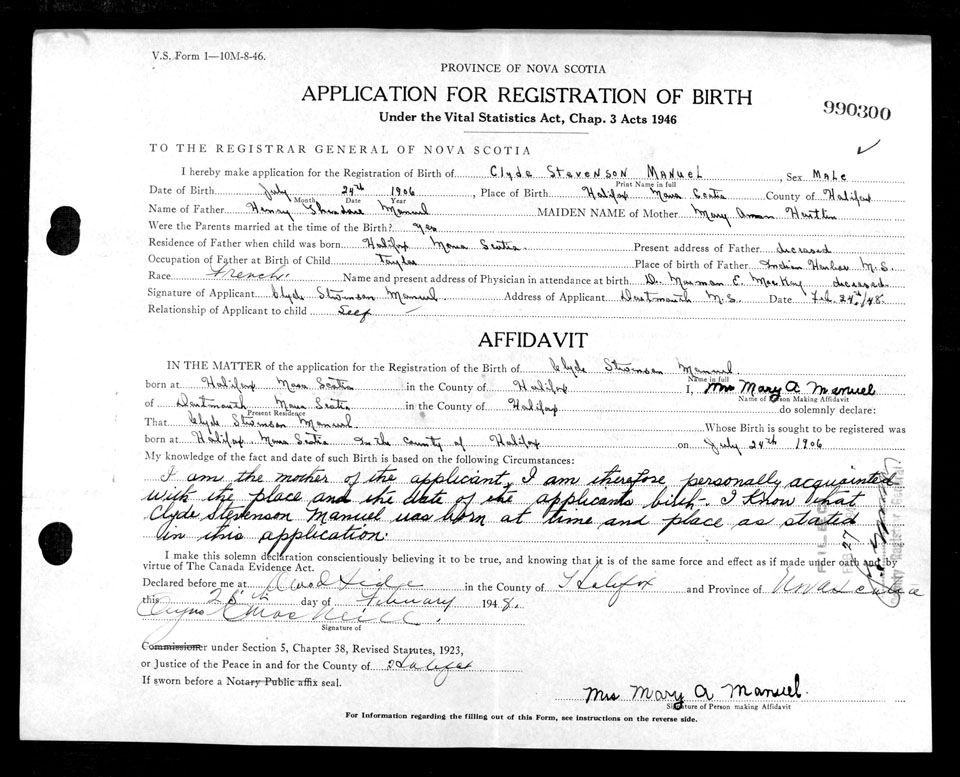 V.S. Form 1—10M-8-46.
PROVINCE OF NOVA SCOTIA
APPLICATION FOR REGISTRATION OF BIRTH
990300
Under the Vital Statistics Act, Chap. 3 Acts 1946
TO THE REGISTRAR GENERAL OF NOVA SCOTIA
I hereby make application for the Registration of Birth of Clyde Stevenson Manuel, Sex Male
Print Name in full
Date of Birth July 24th 1906, Place of Birth Halifax Nova Scotia County of Halifax
Month Date Year
Name of Father Henry Theodore Manuel MAIDEN NAME of Mother Mary Annan
Were the Parents married at the time of the Birth? yes
Residence of Father when child was born Halifax Nova Scotia Present address of Father deceased
Occupation of Father at Birth of Child Place of birth of Father Indian Harbor N.S.
Race French Name and present address of Physician in attendance at birth Dr. Norman E. MacKay deceased
Signature of Applicant Clyde Stevenson Manuel Address of Applicant Dartmouth N.S. Date Feb. 24th/48
Relationship of Applicant to child Self
AFFIDAVIT
IN THE MATTER of the application for the Registration of the Birth of Clyde Stevenson Manuel
Name in full
born at Halifax Nova Scotia in the County of Halifax I, Mrs Mary A Manuel
Name of Person Making Affidavit
of Dartmouth Nova Scotia in the County of Halifax do solemnly declare:
Present Residence
That Clyde Stevenson Manuel Whose Birth is sought to be registered was
born at Halifax Nova Scotia In the County of Halifax on July 24th 1906
My knowledge of the fact and date of such Birth is based on the following Circumstances:
I am the mother of the applicant, I am therefore personally acquainted
with the place and the date of the applicants birth. I Know that
Clyde Stevenson Manuel was born at time and place as stated
in this application.
I make this solemn declaration conscientiously believing it to be true, and knowing that it is of the same force and effect as if made under oath and by
virtue of The Canada Evidence Act.
Declared before me at in the County of Halifax and Province of Nova Scotia
this 25th day of February 1948.
Signature of
Commissioner under Section 5, Chapter 38, Revised Statutes, 1923,
or Justice of the Peace in and for the County of Halifax
If sworn before a Notary Public affix seal.
Mrs Mary A Manuel.
Signature of Person making Affidavit
For Information regarding the filling out of this Form, see instructions on the reverse side.